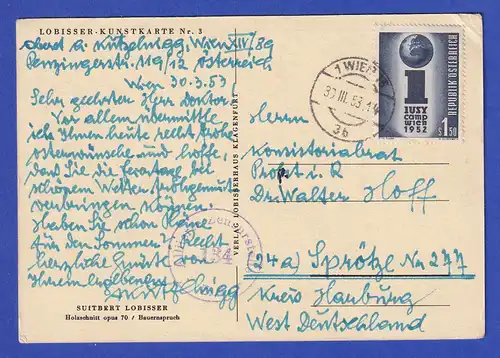 LOBISSER-KUNSTKARTE Nr. 3
Oberst a. Kutzelnigg, Wien XIV/89
Penzingerstr. 119/12 Österreich
Wien 30.3.53
Sehr geehrter Herr Doktor!
Vor allem übermittle
ich Ihnen heute recht frohe
Osterwünsche und hoffe,
daß Sie die Feiertage bei
schönem Wetter
verbringen können.
Haben Sie schon Pläne
für den Sommer? Recht
herzliche Grüße von
Ihrem ergebenen
AKutzelnigg
SUITBERT LOBISSER
Holzschnitt opus 70 / Bauernspruch
VERLAG LOBISSERHAUS KLAGENFURT
134
1 WIEN
30. III. 53
3b
1 IUSY
camp
wien
1952
REPUBLIK ÖSTERREICH
S 1.50
Herrn
Konsistorialrat
Probst i. R.
Dr. Walter Hoff
(24a) Sprötze Nr 277
Kreis Harburg
West Deutschland